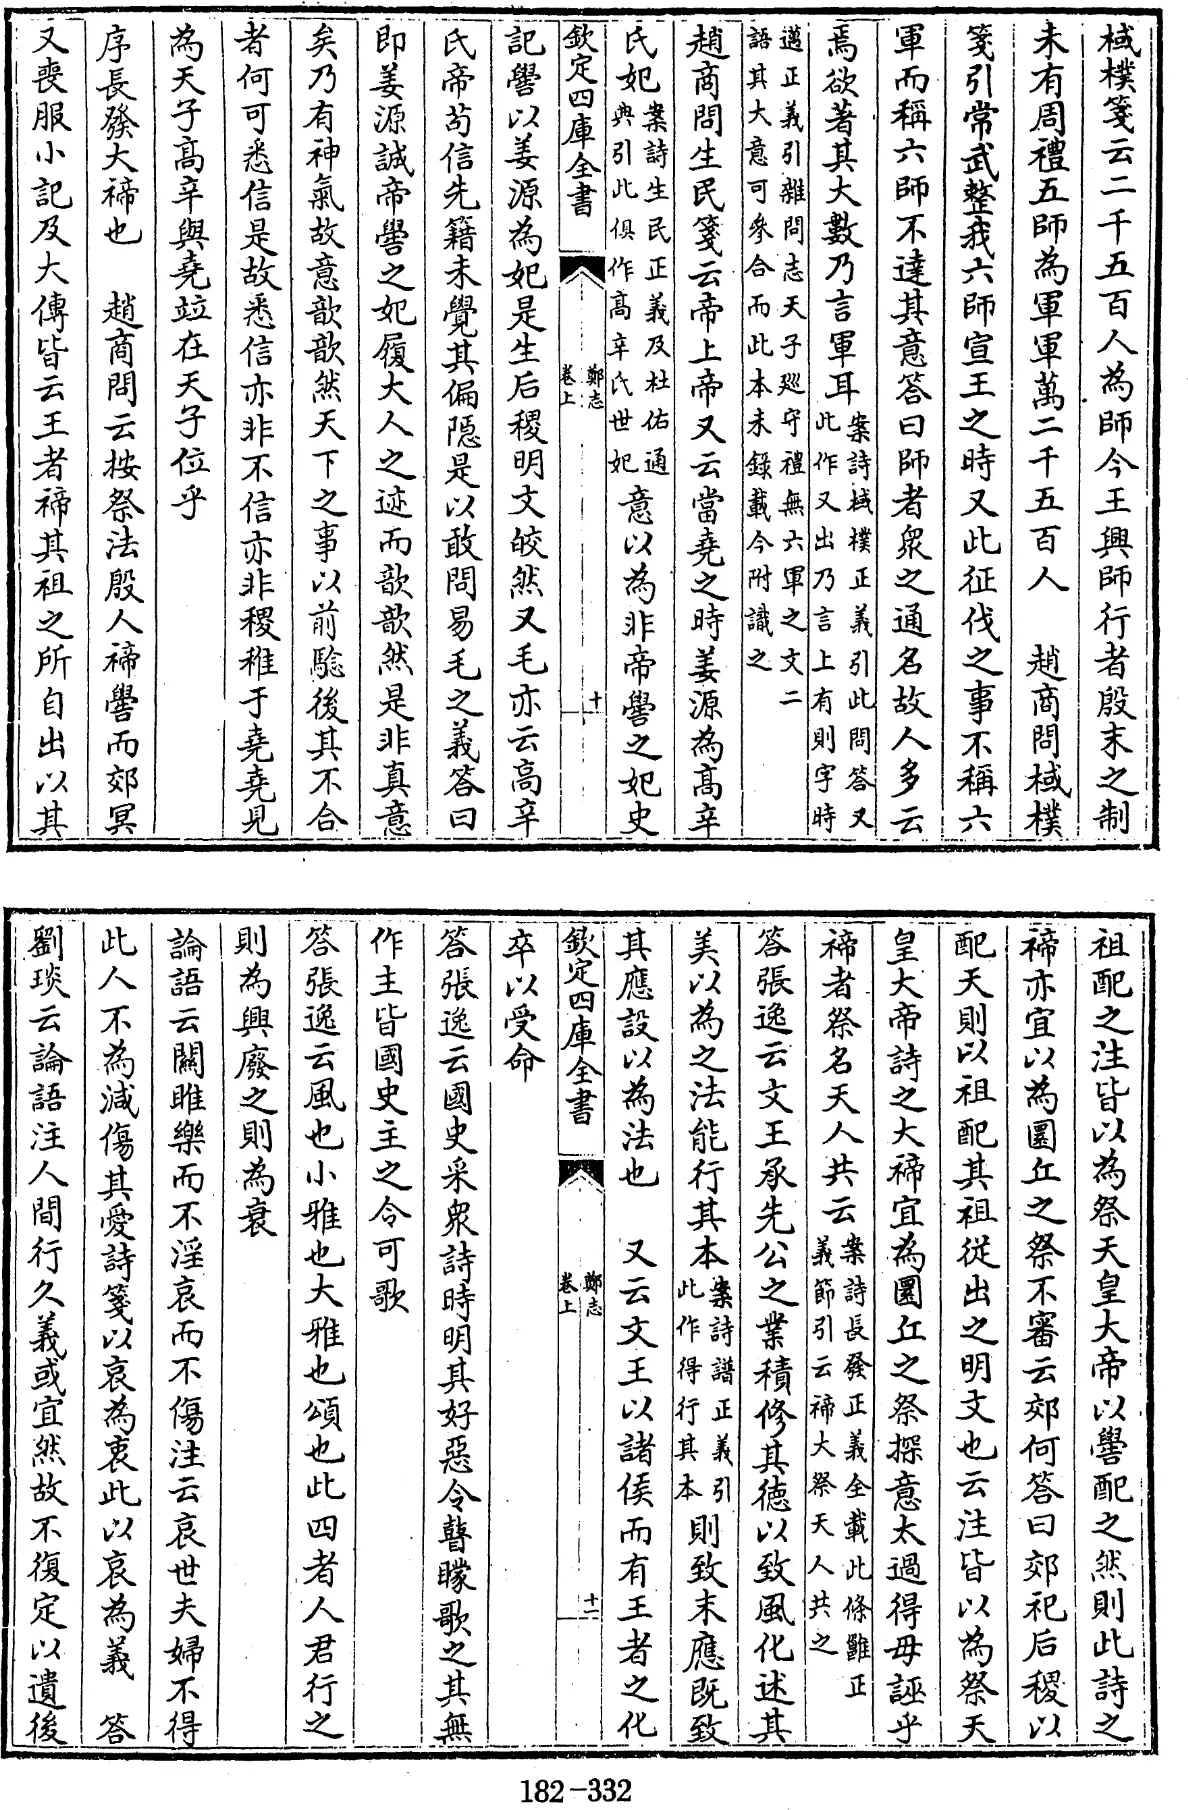 棫樸箋云二千五百人為師今王興師行者殷末之制
未有周禮五師為軍軍萬二千五百人　趙商問棫樸
箋引常武整我六師宣王之時又此征伐之事不稱六
軍而稱六師不達其意答曰師者衆之通名故人多云
焉欲著其大數乃言軍耳案詩棫樸正義引此問答又此作又出乃言上有則字時
邁正義引雜問志天子廵守禮無六軍之文二語其大意可參合而此本未錄載今附識之
趙商問生民箋云帝上帝又云當堯之時姜源為髙辛
氏妃案詩生民正義及杜佑通典引此俱作髙辛氏世妃意以為非帝嚳之妃史
欽定四庫全書
鄭志卷上
十
記嚳以姜源為妃是生后稷明文皎然又毛亦云高辛
氏帝茍信先籍未覺其偏隱是以敢問易毛之義答曰
即姜源誠帝嚳之妃履大人之迹而歆歆然是非真意
矣乃有神氣故意歆歆然天下之事以前驗後其不合
者何可悉信是故悉信亦非不信亦非稷稚于堯堯見
為天子高辛與堯竝在天子位乎
序長發大禘也　趙商問云按祭法殷人禘嚳而郊冥
又喪服小記及大傳皆云王者禘其祖之所自出以其
祖配之注皆以為祭天皇大帝以嚳配之然則此詩之
禘亦宜以為圜丘之祭不審云郊何答曰郊祀后稷以
配天則以祖配其祖從出之明文也云注皆以為祭天
皇大帝詩之大禘宜為圜丘之祭探意太過得毋誣乎
禘者祭名天人共云案詩長發正義全載此條雖正義節引云禘大祭天人共之
答張逸云文王承先公之業積修其德以致風化述其
美以為之法能行其本案詩譜正義引此作得行其本則致末應既致
其應設以為法也　又云文王以諸侯而有王者之化
欽定四庫全書
鄭志卷上
十一
卒以受命
答張逸云國史采衆詩時明其好惡令瞽矇歌之其無
作主皆國史主之令可歌
答張逸云風也小雅也大雅也頌也此四者人君行之
則為興廢之則為衰
論語云關雎樂而不淫哀而不傷注云哀世夫婦不得
此人不為減傷其愛詩箋以哀為衷此以哀為義　答
劉琰云論語注人間行久義或宜然故不復定以遺後
182-332